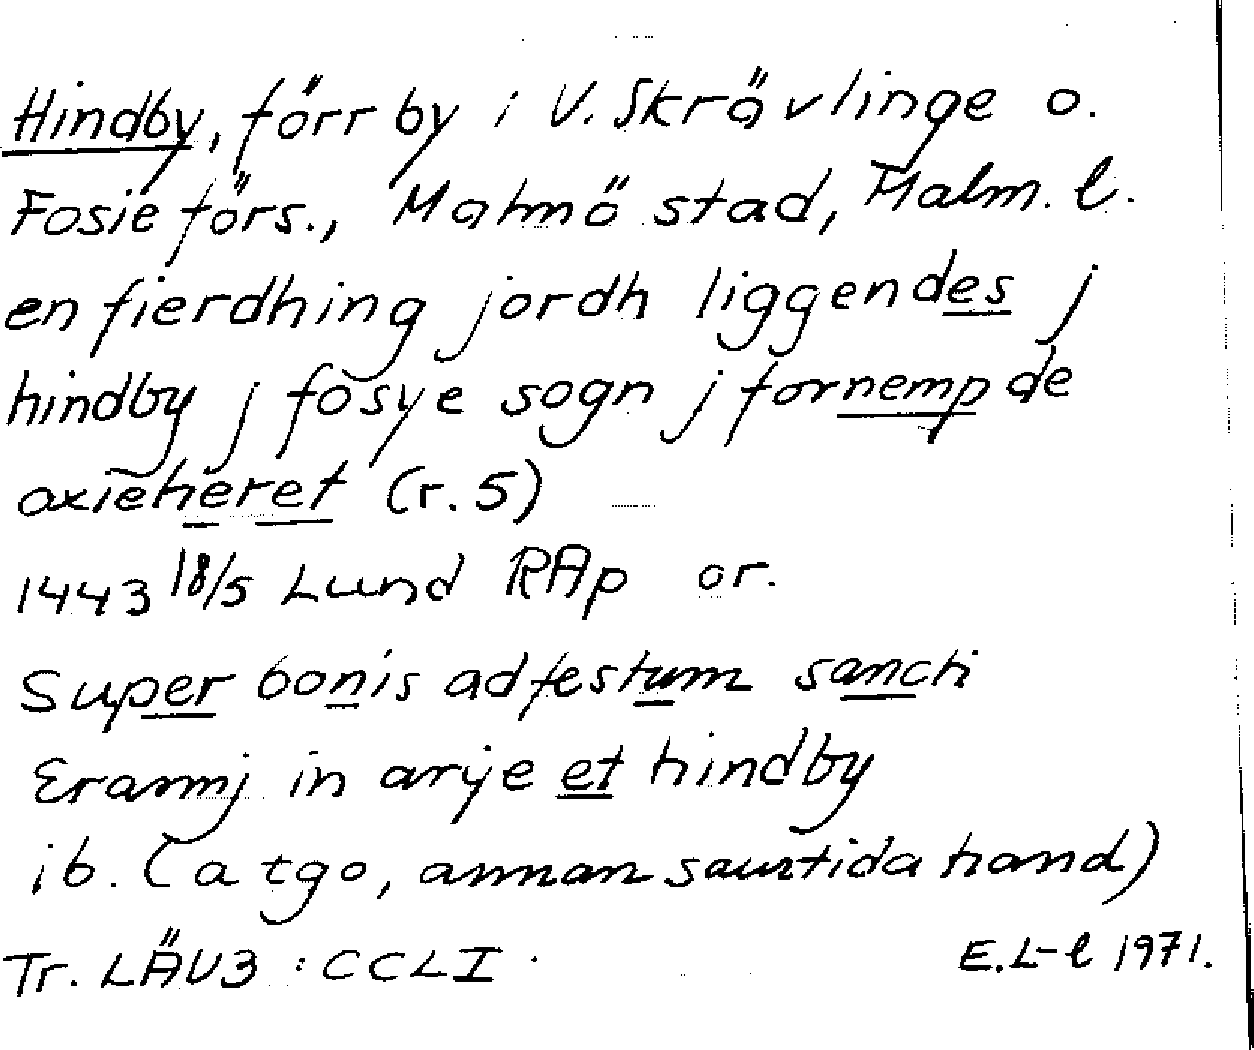 Hindby, förr by i V. Skrävlinge o.
Fosie förs., Malmö stad, Malm. l.
en fierdhing jordh liggendes j
hindby j fosye sogn j fornempde
oxieheret (r. 5)
1443 18/5 Lund RAp or.
Super bonis ad festum sancti
Erasmj in arye et hindby
ib. (a tgo, annan samtida hand)
Tr. LÄU3 : CCLI.
E.L-l 1971.